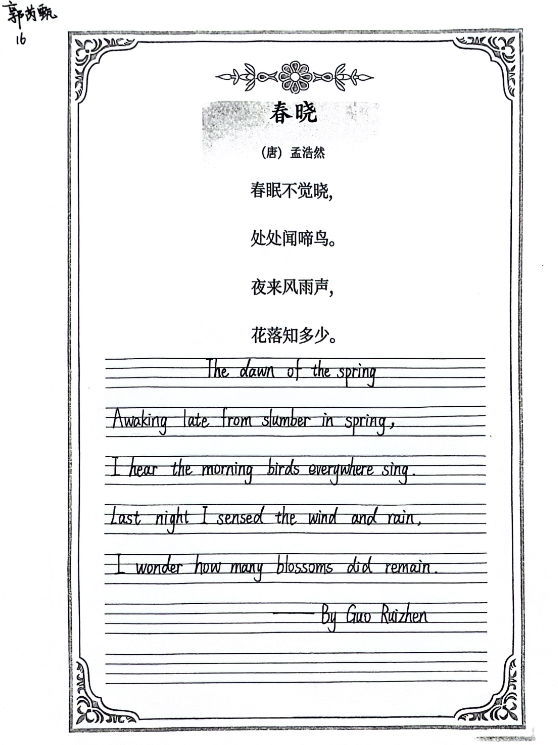 郭芮甄
16
春晓
（唐）孟浩然
春眠不觉晓，
处处闻啼鸟。
夜来风雨声，
花落知多少。
The dawn of the spring
Awaking late from slumber in spring,
I hear the morning birds everywhere sing.
Last night I sensed the wind and rain,
I wonder how many blossoms did remain.
—— By Guo Ruizhen